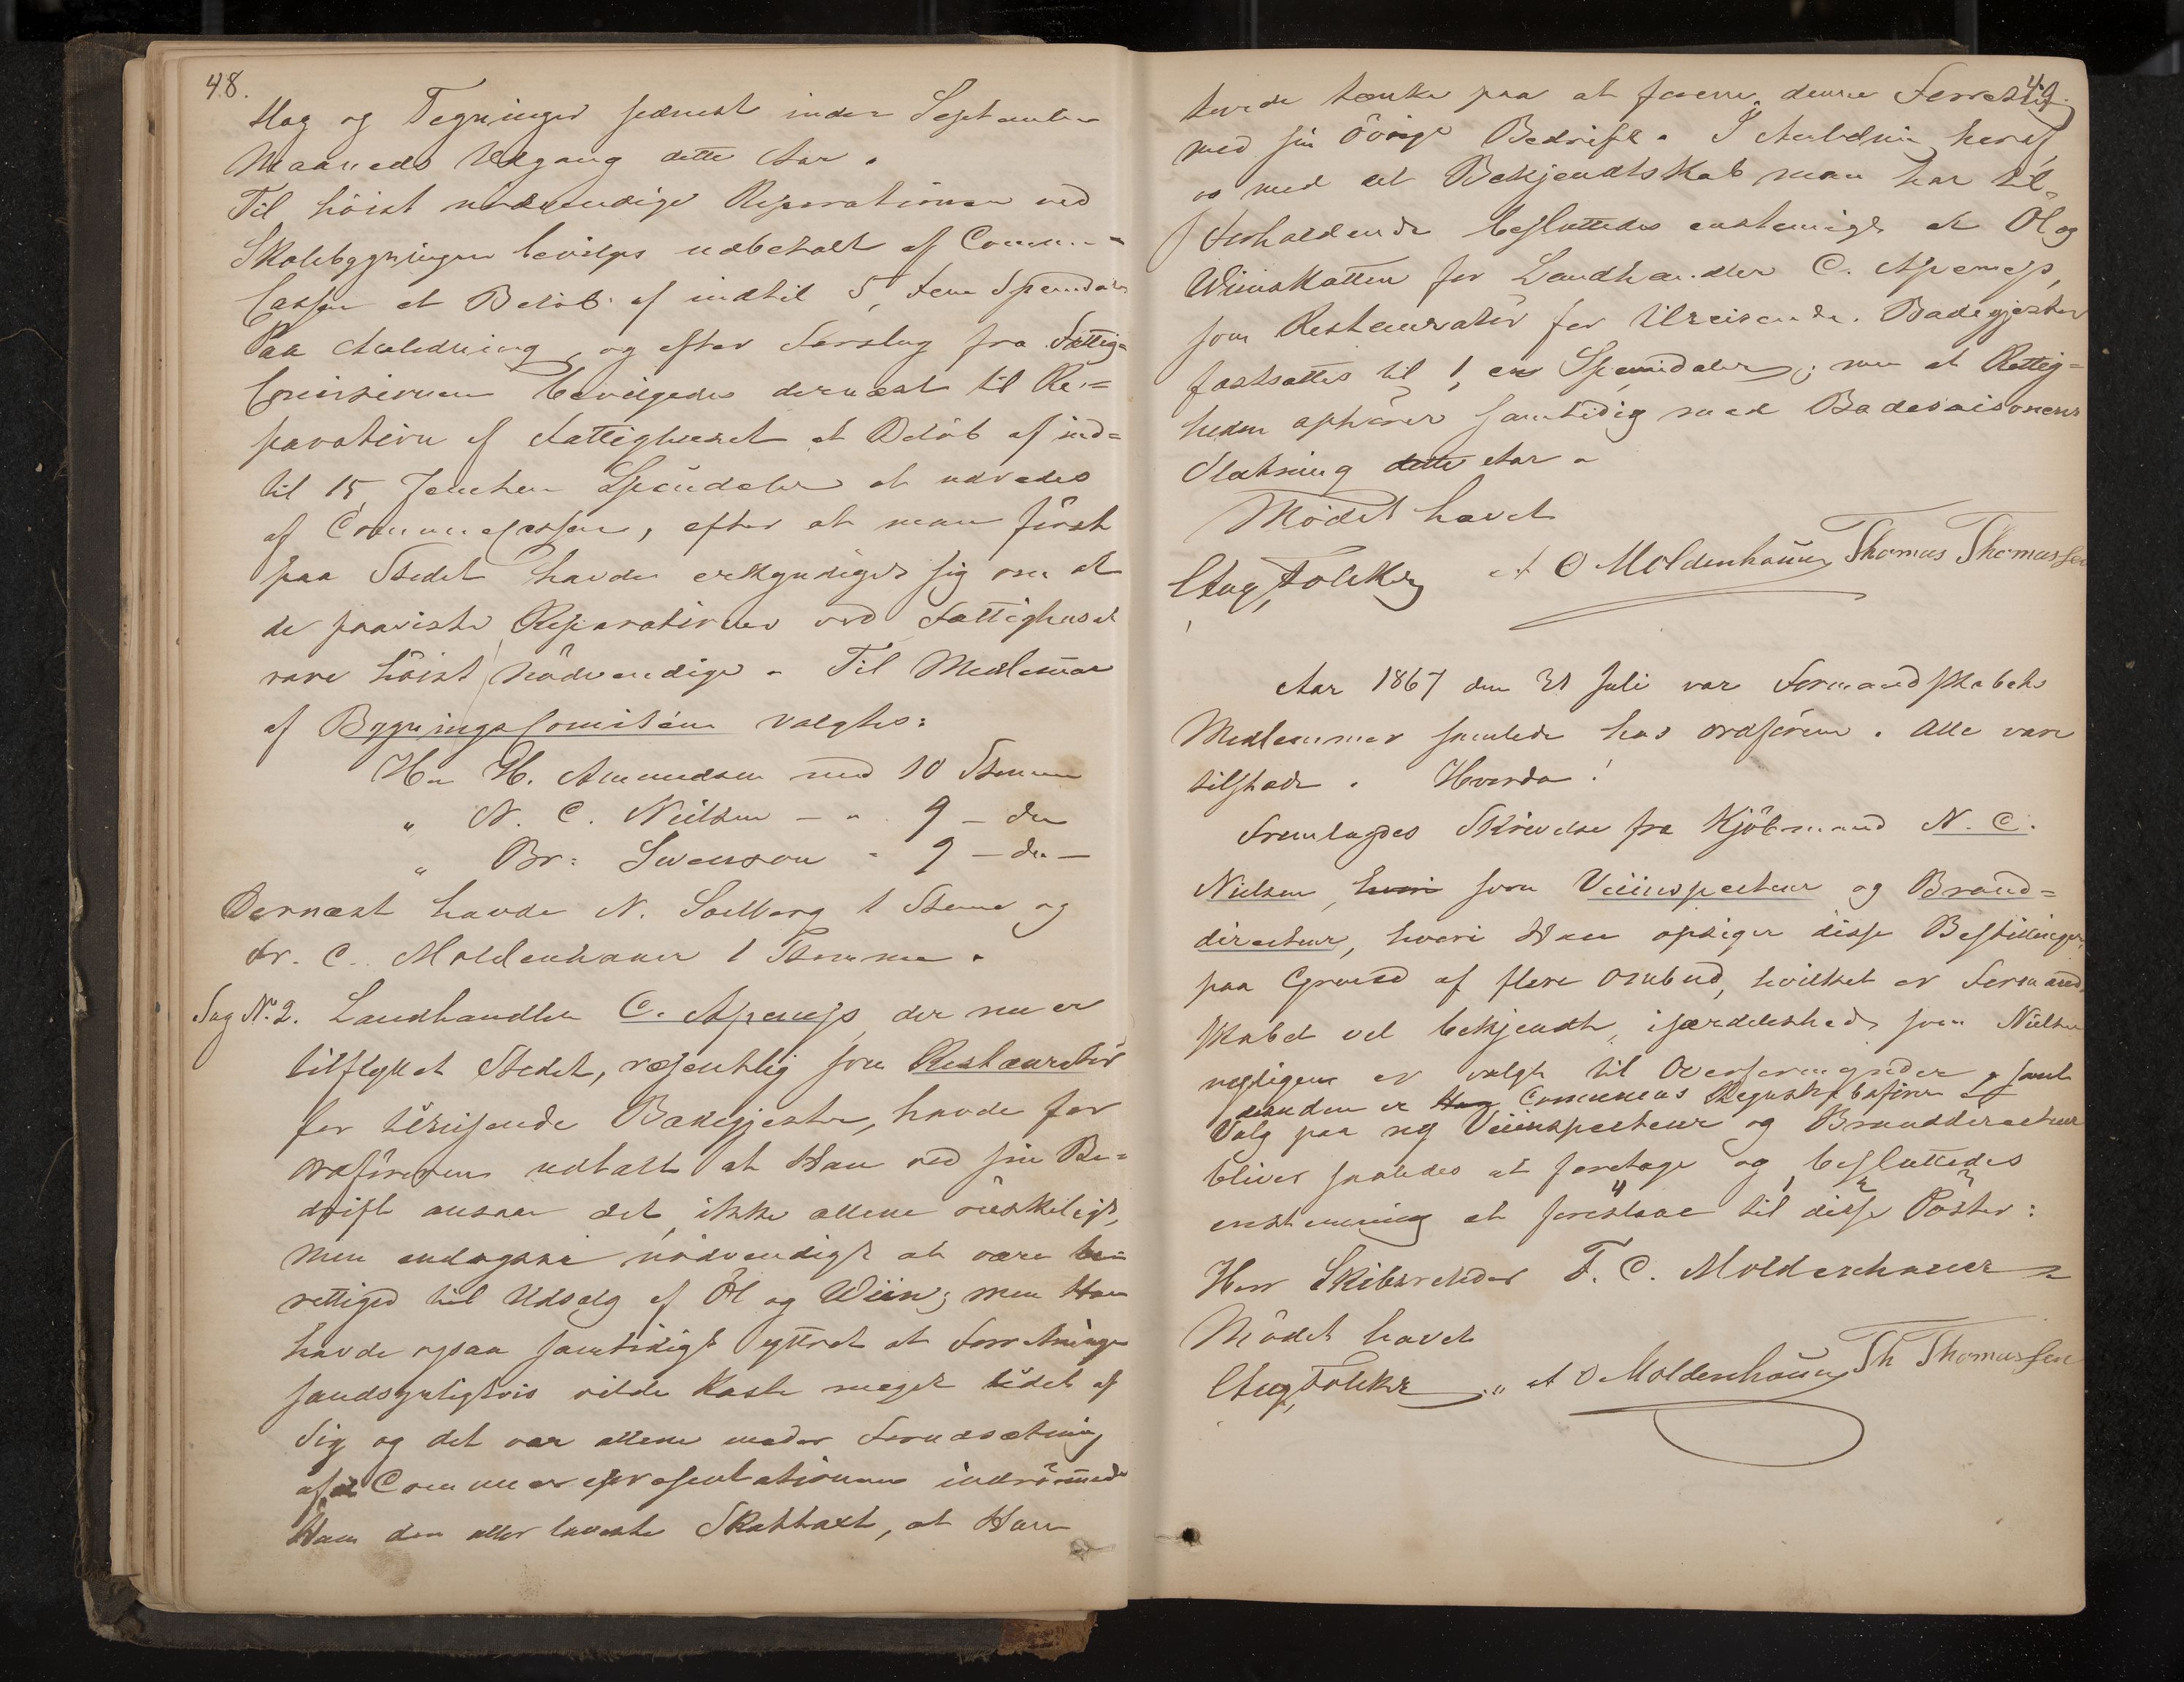 48.
slag og Tegninger senest inden September
Maaneds Udgang dette Aar.
Til høist nødvendige Reparationer ved
Skolebygningen bevilges udbetalt af Commune-
Cassen et Beløb af indtil 5, fem Speciedaler
Paa Anledning, og efter Forslag fra Fattig-
Comissionen bevilgedes dernæst til Re-
paration af Fattighuset et Beløb af ind-
til 15 femten Speciedaler at udredes
af Communecassen, efter at man først
paa Stedet havde erkyndiget sig om at
de paaviste Reparationer ved Fattighuset
vare høist nødvendige. Til Medlemmer
af Bygningscomitéen valgtes:
Hr H. Amundsen med 10 Stemmer
" N. C. Nielsen - " 9 - do
" Br: Svenson - 9 - do -
Dernæst havde N. Solberg 1 Stemme og
Fr. C. Moldenhauer 1 Stemme.
Sag No. 2. Landhandler C. Apenes, der nu er
tilflyttet Stedet, væsentlig som Restauratør
for tilreisende Badegjester, havde for
Ordføreren udtalt at Han ved sin Be-
drift ansaa det, ikke allene ønskeligt,
men endogsaa nødvendigt at være be-
rettiged til Udsalg af Öl og Wiin; men Han
havde ogsaa samtidigt yttret at Forretningen
sandsynligviis vilde kaste meget lidet af
sig og det var allene under Forudsætning
af at Communerepresentationen indrømmede
Ham den aller laveste Skattaxt, at Han
49.
turde tænke paa at forene denne Forretning
med sin øvrige Bedrift. I Anledning heraf,
og med det Bekjendtskab man har til
Forholdende besluttedes enstemigt at Öl og
Wiinskatten for Landhandler C. Apenes,
som Restauratør for tilreisende Badegjester
fastsattes til 1, en Speciedaler; men at Rettig-
heden ophører samtidig med Badesaisonens
Slutning dette Aar.
Mødet hævet
Aug. Folcker A O Moldenhauer Thomas Thomassen
Aar 1867 den 31 Juli var Formandskabets
Medlemmer samlede hos Ordføreren. Alle vare
tilstede. Hvorda!
Fremlagdes Skrivelse fra Kjøbmand N. C.
Nielsen, som Veiinspecteur og Brand-
directeur, hvori Han opsiger disse Bestillinger
paa Grund af flere Ombud, hvilket er Formand-
skabet vel bekjendt, isærdeleshed som Nielsen
nyligen er valgt til Overformynder, samt
desuden er Communens Regnskabsfører
Valg paa ny Veiinspecteur og Branddirecteur
bliver saaledes at foretage og besluttedes
enstemmig at foreslaae til disse Poster:
Herr Skibsreder F. C. Moldenhauer
Mødet hævet
Aug. Folcker A O Moldenhauer Th Thomassen